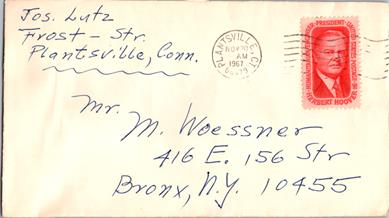 Jos. Lutz
Frost - Str.
Plantsville, Conn.
PLANTSVILLE, CT.
AM
1967
HERBERT HOOVER
Mr.
M. Woessner
416 E. 156 Str
Bronx, N.Y. 10455